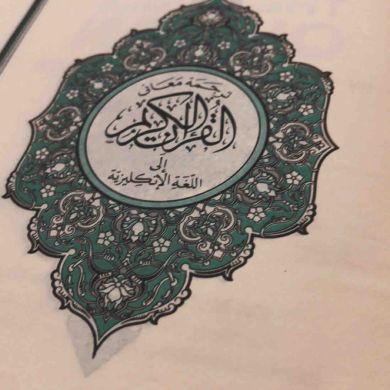 ترجمة معاني
القرآن الكريم
إلى
اللغة الإنكليزية